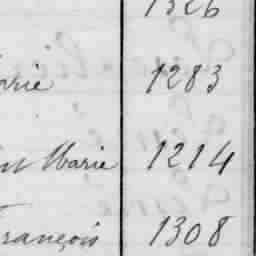 1326
arie 1283
Marie 1214
François 1308